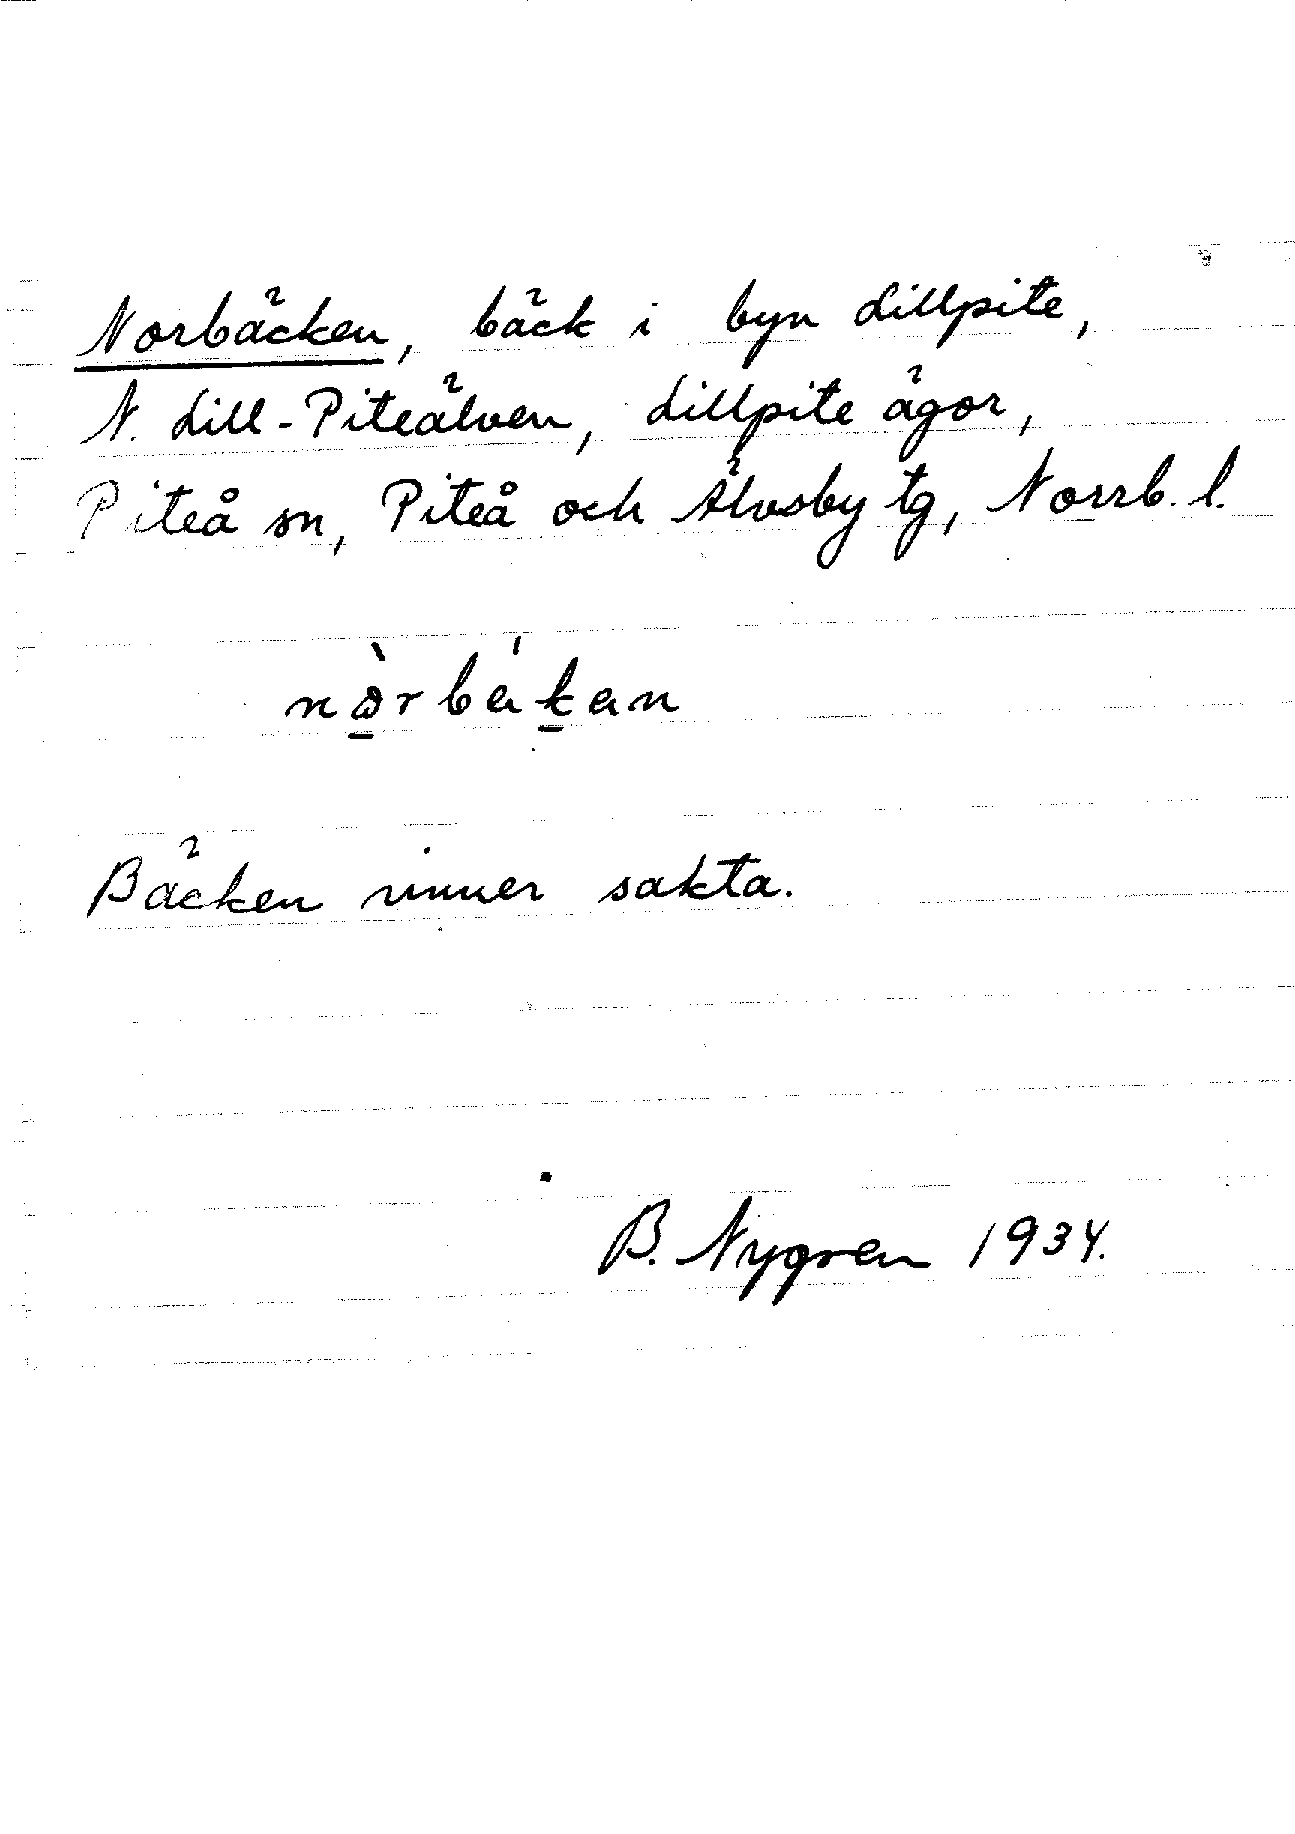 Norbäcken, bäck i byn Lillpite,
N. Lill-Piteälven, Lillpite ägor,
Piteå sn, Piteå och Älvsby tg, Norrb. l.
nòrbákan
Bäcken rinner sakta.
B. Nygren 1934.